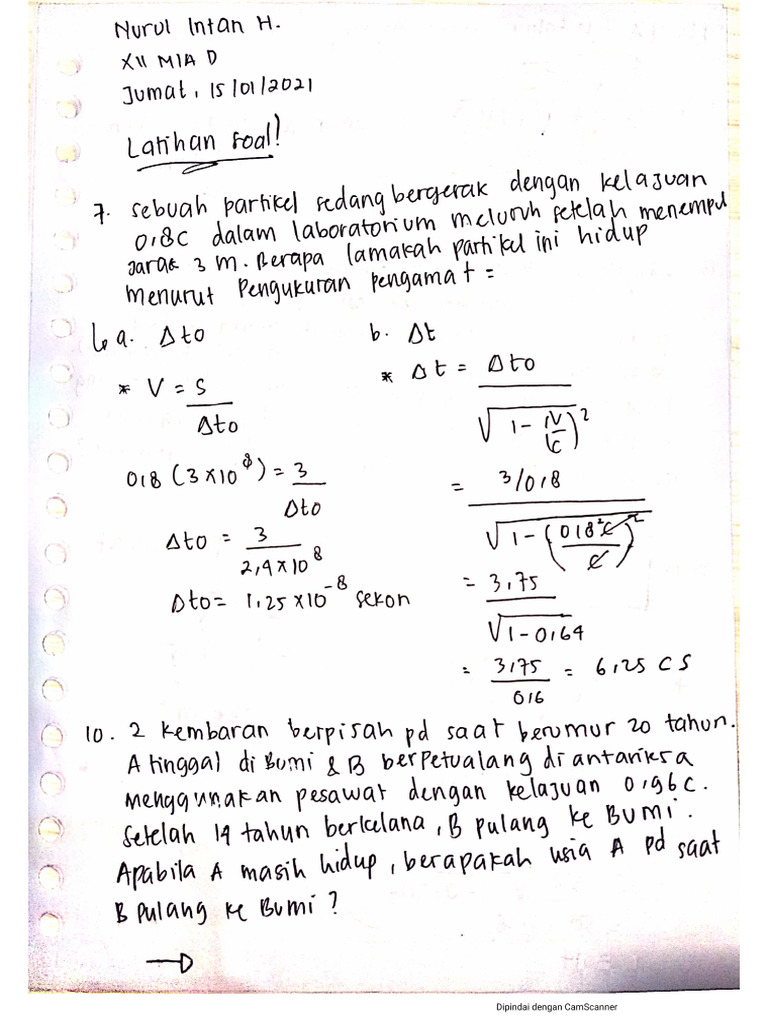 Nurul Intan H.
XII MIA D
Jumat, 15/01/2021
Latihan soal!
7. Sebuah partikel sedang bergerak dengan kelajuan
0,8C dalam laboratorium meluruh setelah menempuh
jarak 3 m. Berapa lamakah partikel ini hidup
menurut Pengukuran pengamat =
a. Δto
b. Δt
* V = S / Δto
* Δt = Δto / √1 - (V/c)²
0,8 (3×10⁸) = 3 / Δto
= 3/0,8 / √1 - (0,8²c/c)²
Δto = 3 / 2,4×10⁸
Δto = 1,25 ×10⁻⁸ sekon
= 3,75 / √1-0,64
= 3,75 / 0,6 = 6,25 CS
10. 2 kembaran berpisah pd saat berumur 20 tahun.
A tinggal di Bumi & B berpetualang di antariksa
menggunakan pesawat dengan kelajuan 0,96c.
Setelah 14 tahun berkelana, B pulang ke Bumi.
Apabila A masih hidup, berapakah usia A pd saat
B pulang ke Bumi?
Dipindai dengan CamScanner